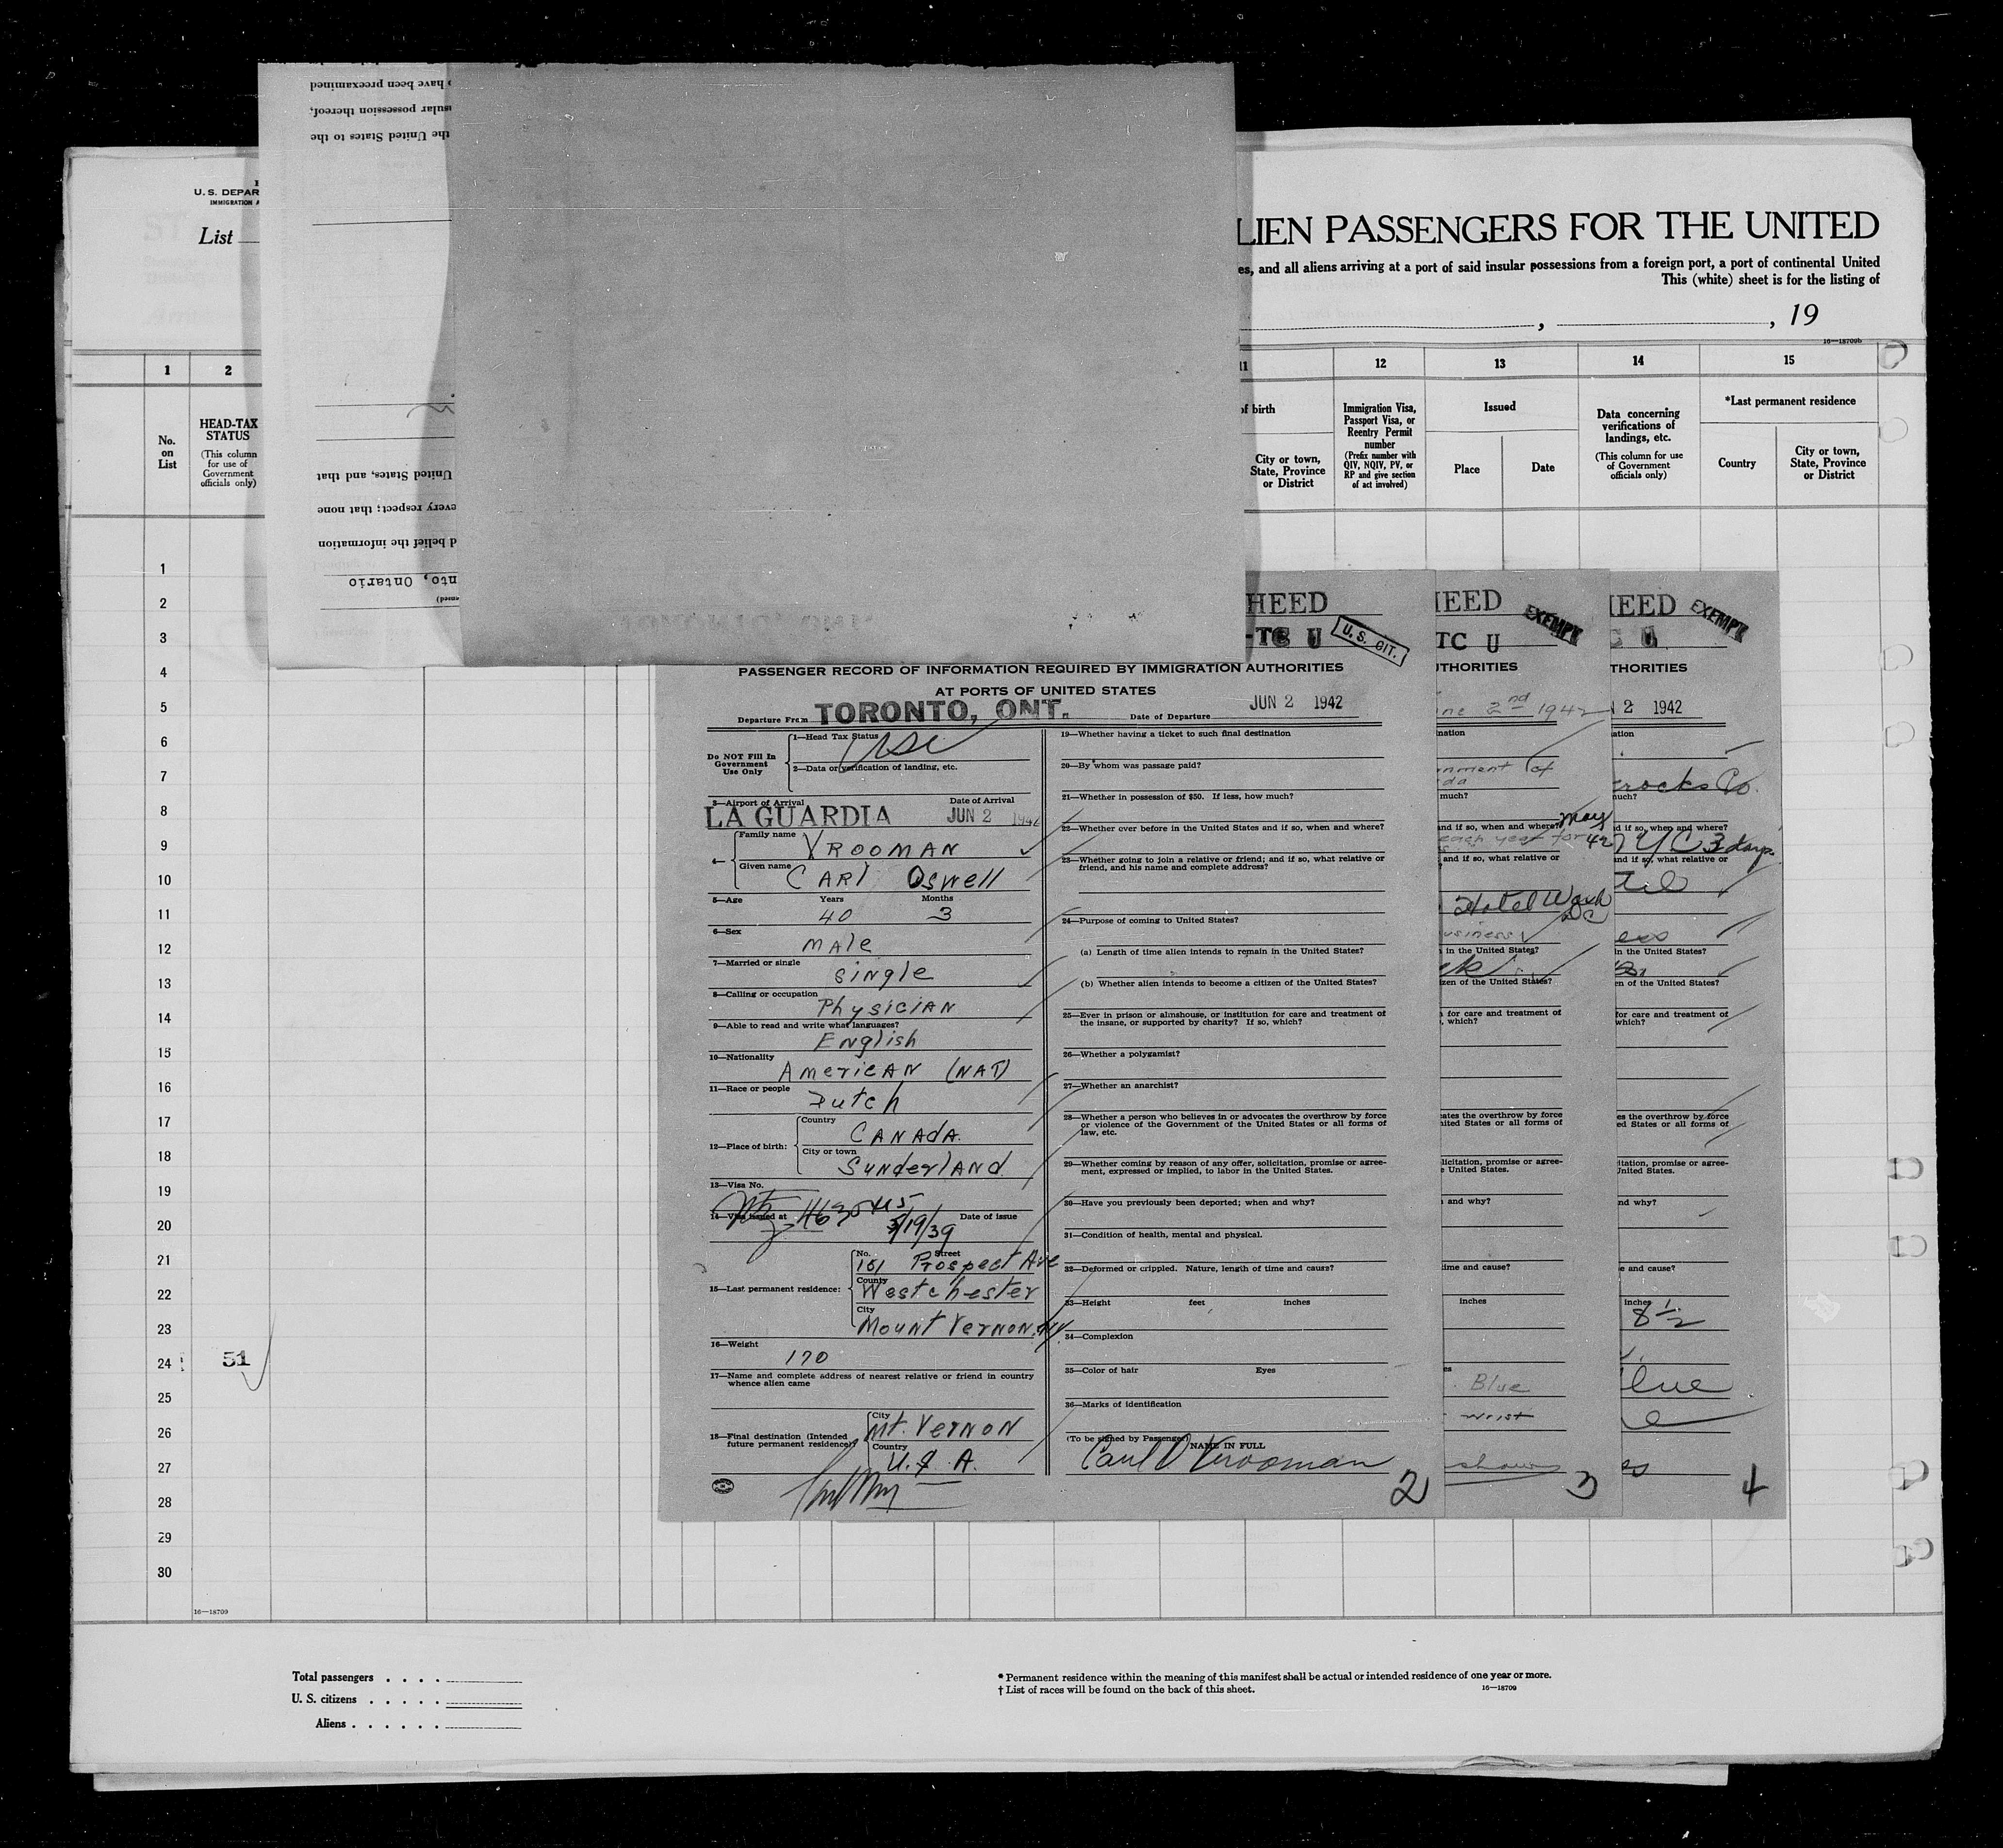 have been preexamined
possession thereof,
the United States to the
United States, and that
every respect; that none
belief the information
Ontario
U. S. DEPAR
IMMIGRATION A
List
LIEN PASSENGERS FOR THE UNITED
es, and all aliens arriving at a port of said insular possessions from a foreign port, a port of continental United
This (white) sheet is for the listing of
, , 19
16—18709b
1 2 11 12 13 14 15
No. on List
HEAD-TAX STATUS
(This column for use of Government officials only)
of birth
City or town, State, Province or District
Immigration Visa, Passport Visa, or Reentry Permit number
(Prefix number with QIV, NQIV, PV, or RP and give section of act involved)
Issued
Place
Date
Data concerning verifications of landings, etc.
(This column for use of Government officials only)
*Last permanent residence
Country
City or town, State, Province or District
1
2
3
4
5
6
7
8
9
10
11
12
13
14
15
16
17
18
19
20
21
22
23
24 51
25
26
27
28
29
30
16—18709
HEED
-TC U
U. S. CIT.
PASSENGER RECORD OF INFORMATION REQUIRED BY IMMIGRATION AUTHORITIES
AT PORTS OF UNITED STATES
Departure From TORONTO, ONT. Date of Departure JUN 2 1942
Do NOT Fill In Government Use Only
1—Head Tax Status USC
2—Data or verification of landing, etc.
3—Airport of Arrival Date of Arrival
LA GUARDIA JUN 2 1942
4— Family name VROOMAN
Given name CARl Oswell
5—Age Years Months
40 3
6—Sex
MAle
7—Married or single
single
8—Calling or occupation
PhysiciAN
9—Able to read and write what languages?
English
10—Nationality
AmericAN (NAT)
11—Race or people
Dutch
12—Place of birth: Country
CANAdA.
City or town
SunderlANd.
13—Visa No.
14—Visa issued at Date of issue
5/19/39
15—Last permanent residence: No. Street
161 Prospect Ave
County
Westchester
City
Mount Vernon, NY.
16—Weight
170
17—Name and complete address of nearest relative or friend in country
whence alien came
18—Final destination (Intended
future permanent residence)? City
Mt. Vernon
Country
U. S. A.
19—Whether having a ticket to such final destination
20—By whom was passage paid?
21—Whether in possession of $50. If less, how much?
22—Whether over before in the United States and if so, when and where?
23—Whether going to join a relative or friend; and if so, what relative or
friend, and his name and complete address?
24—Purpose of coming to United States?
(a) Length of time alien intends to remain in the United States?
(b) Whether alien intends to become a citizen of the United States?
25—Ever in prison or almshouse, or institution for care and treatment of
the insane, or supported by charity? If so, which?
26—Whether a polygamist?
27—Whether an anarchist?
28—Whether a person who believes in or advocates the overthrow by force
or violence of the Government of the United States or all forms of
law, etc.
29—Whether coming by reason of any offer, solicitation, promise or agree-
ment, expressed or implied, to labor in the United States.
30—Have you previously been deported; when and why?
31—Condition of health, mental and physical.
32—Deformed or crippled. Nature, length of time and cause?
33—Height feet inches
34—Complexion
35—Color of hair Eyes
36—Marks of identification
(To be signed by Passenger) NAME IN FULL
Carl O Vrooman
2
HEED
EXEMPT
TC U
THORITIES
2nd 1942
nation
much?
and if so, when and where? May 42
each year for
and if so, what relative or
Hotel Wash DC
usiness
in the United States?
zen of the United States?
for care and treatment of
, which?
ates the overthrow by force
nited States or all forms of
licitation, promise or agree-
e United States.
and why?
ime and cause?
inches
es
Blue
wrist
3
EED
EXEMPT
THORITIES
2 1942
ation
rocks Co.
uch?
d if so, when and where?
N Y C 3 days
nd if so, what relative or
in the United States?
en of the United States?
for care and treatment of
which?
es the overthrow by force
ed States or all forms of
itation, promise or agree-
United States.
nd why?
e and cause?
inches
8 1/2
lue
4
Total passengers . . . .
U. S. citizens . . . . .
Aliens . . . . . .
* Permanent residence within the meaning of this manifest shall be actual or intended residence of one year or more.
† List of races will be found on the back of this sheet. 16—18709